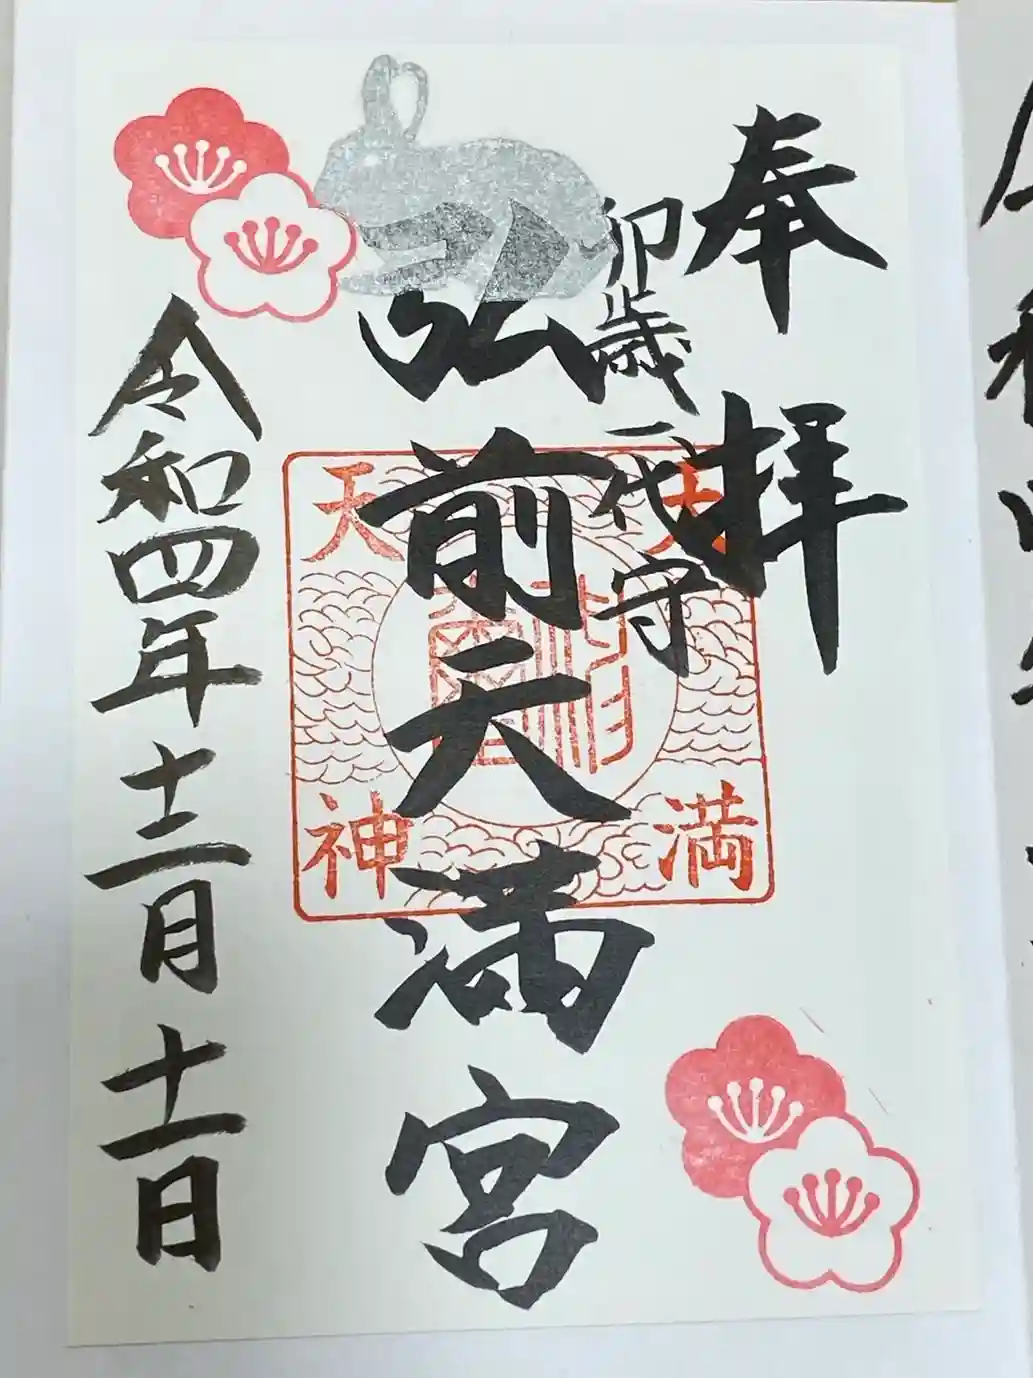 奉拝
卯歳一代守
弘前天満宮
天満
天神
令和四年十二月十一日